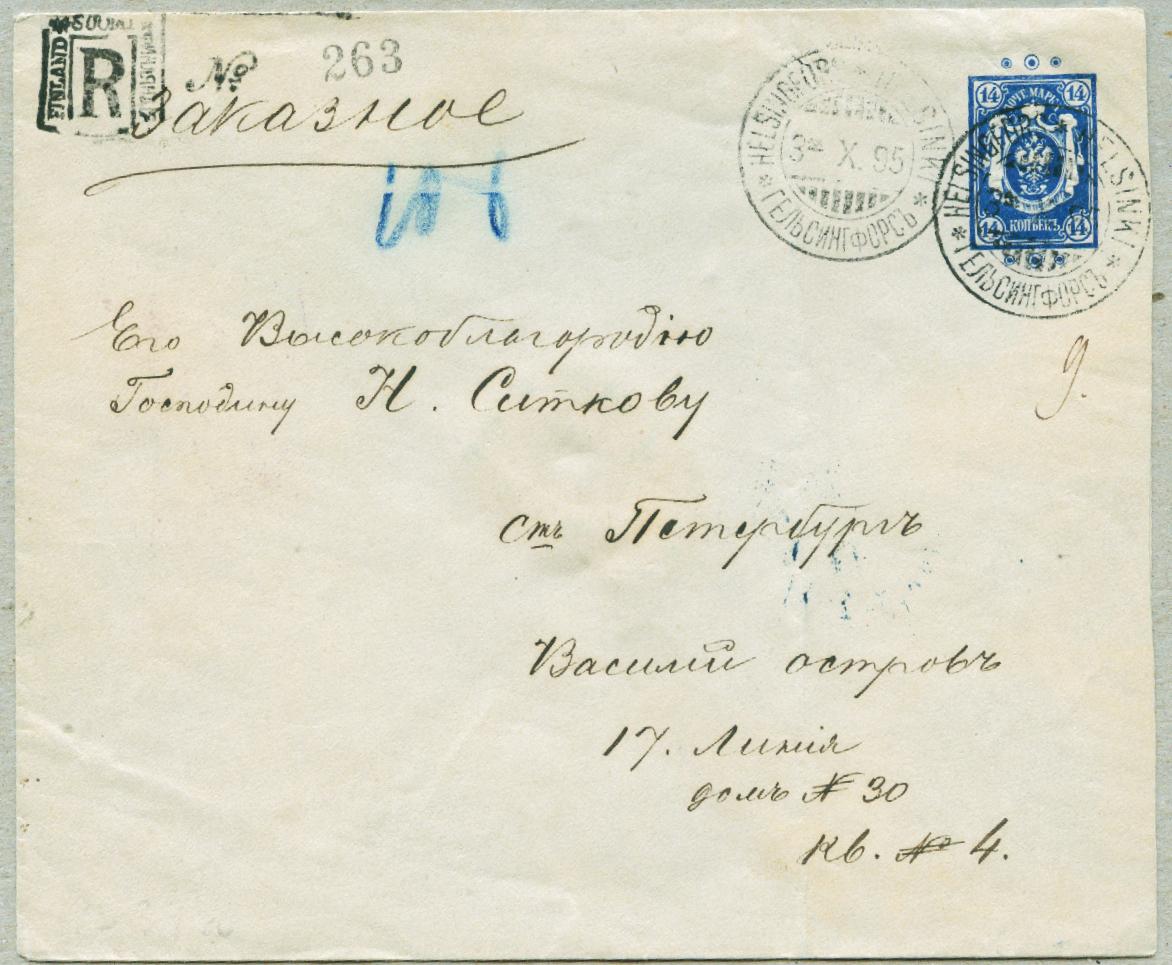 FINLAND
R
№ 263
Заказное
HELSINGFORS * HELSINKI
3 X 95
* ГЕЛЬСИНГФОРСЪ *
14 14
КОПѢЕКЪ
14 14
HELSINGFORS * HELSINKI
* ГЕЛЬСИНГФОРСЪ *
Его Высокоблагородію
Господину Н. Ситкову
9.
Стъ Петербургъ
Василій островъ
17. Линія
домъ № 30
кв. № 4.